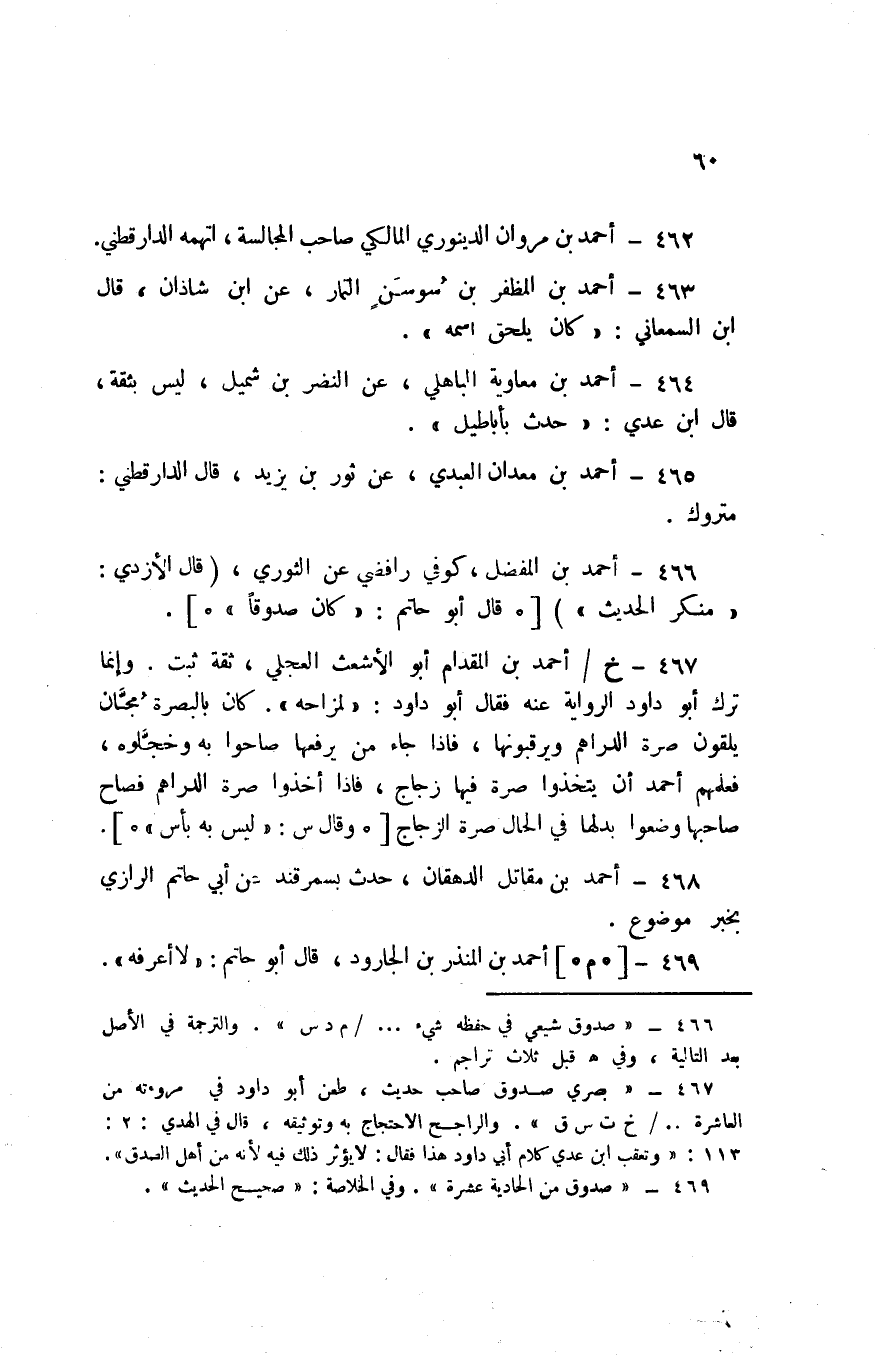 ٦٠
٤٦٢ – أحمد بن مروان الدينوري المالكي صاحب المجالسة ، اتهمه الدارقطني.
٤٦٣ – أحمد بن المظفر بن سُوسَنٍ التمار ، عن ابن شاذان ، قال
ابن السمعاني : « كان يلحق اسمه » .
٤٦٤ – أحمد بن معاوية الباهلي ، عن النضر بن شميل ، ليس بثقة ،
قال ابن عدي : « حدث بأباطيل » .
٤٦٥ – أحمد بن معدان العبدي ، عن ثور بن يزيد ، قال الدارقطني :
متروك .
٤٦٦ – أحمد بن المفضل ، كوفي رافضي عن الثوري ، ( قال الأزدي :
« منكر الحديث » ) [ ٥ قال أبو حاتم : « كان صدوقاً » ٥ ] .
٤٦٧ – خ / أحمد بن المقدام أبو الأشعث العجلي ، ثقة ثبت . وإنما
ترك أبو داود الرواية عنه فقال أبو داود : « لمزاحه » . كان بالبصرة مُجَّان
يلقون صرة الدراهم ويرقبونها ، فاذا جاء من يرفعها صاحوا به وخجَّلوه ،
فعلمهم أحمد أن يتخذوا صرة فيها زجاج ، فاذا أخذوا صرة الدراهم فصاح
صاحبها وضعوا بدلها في الحال صرة الزجاج [ ٥ وقال س : « ليس به بأس » ٥ ] .
٤٦٨ – أحمد بن مقاتل الدهقان ، حدث بسمرقند عن أبي حاتم الرازي
بخبر موضوع .
٤٦٩ – [ ٥ م ٥ ] أحمد بن المنذر بن الجارود ، قال أبو حاتم : « لا أعرفه » .
٤٦٦ – « صدوق شيعي في حفظه شيء ... / م د س » . والترجمة في الأصل
بعد التالية ، وفي ه قبل ثلاث تراجم .
٤٦٧ – « بصري صدوق صاحب حديث ، طعن أبو داود في مروءته من
العاشرة .. / خ ت س ق » . والراجح الاحتجاج به وتوثيقه ، قال في الهدي : ٢ :
١١٣ : « وتعقب ابن عدي كلام أبي داود هذا فقال : لا يؤثر ذلك فيه لأنه من أهل الصدق » .
٤٦٩ – « صدوق من الحادية عشرة » . وفي الخلاصة : « صحيح الحديث » .